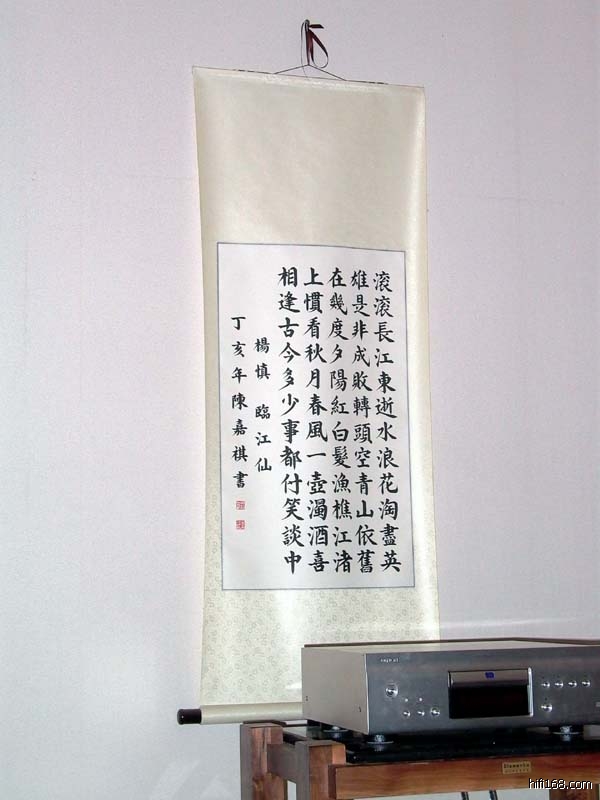 滾滾長江東逝水浪花淘盡英
雄是非成敗轉頭空青山依舊
在幾度夕陽紅白髮漁樵江渚
上慣看秋月春風一壺濁酒喜
相逢古今多少事都付笑談中
楊慎 臨江仙
丁亥年陳嘉祺書
hifi168.com